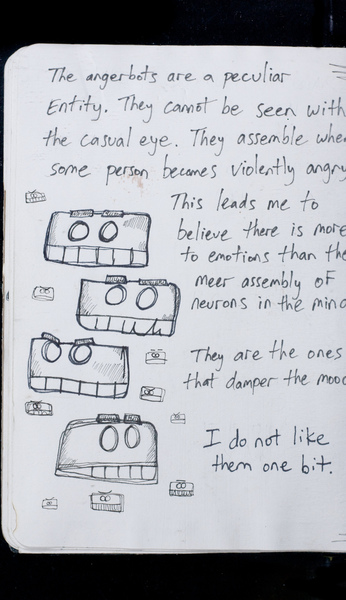 The angerbots are a peculiar
Entity. They cannot be seen with
the casual eye. They assemble when
some person becomes violently angry
This leads me to
believe there is more
to emotions than the
meer assembly of
neurons in the mind
They are the ones
that damper the mood
I do not like
them one bit.